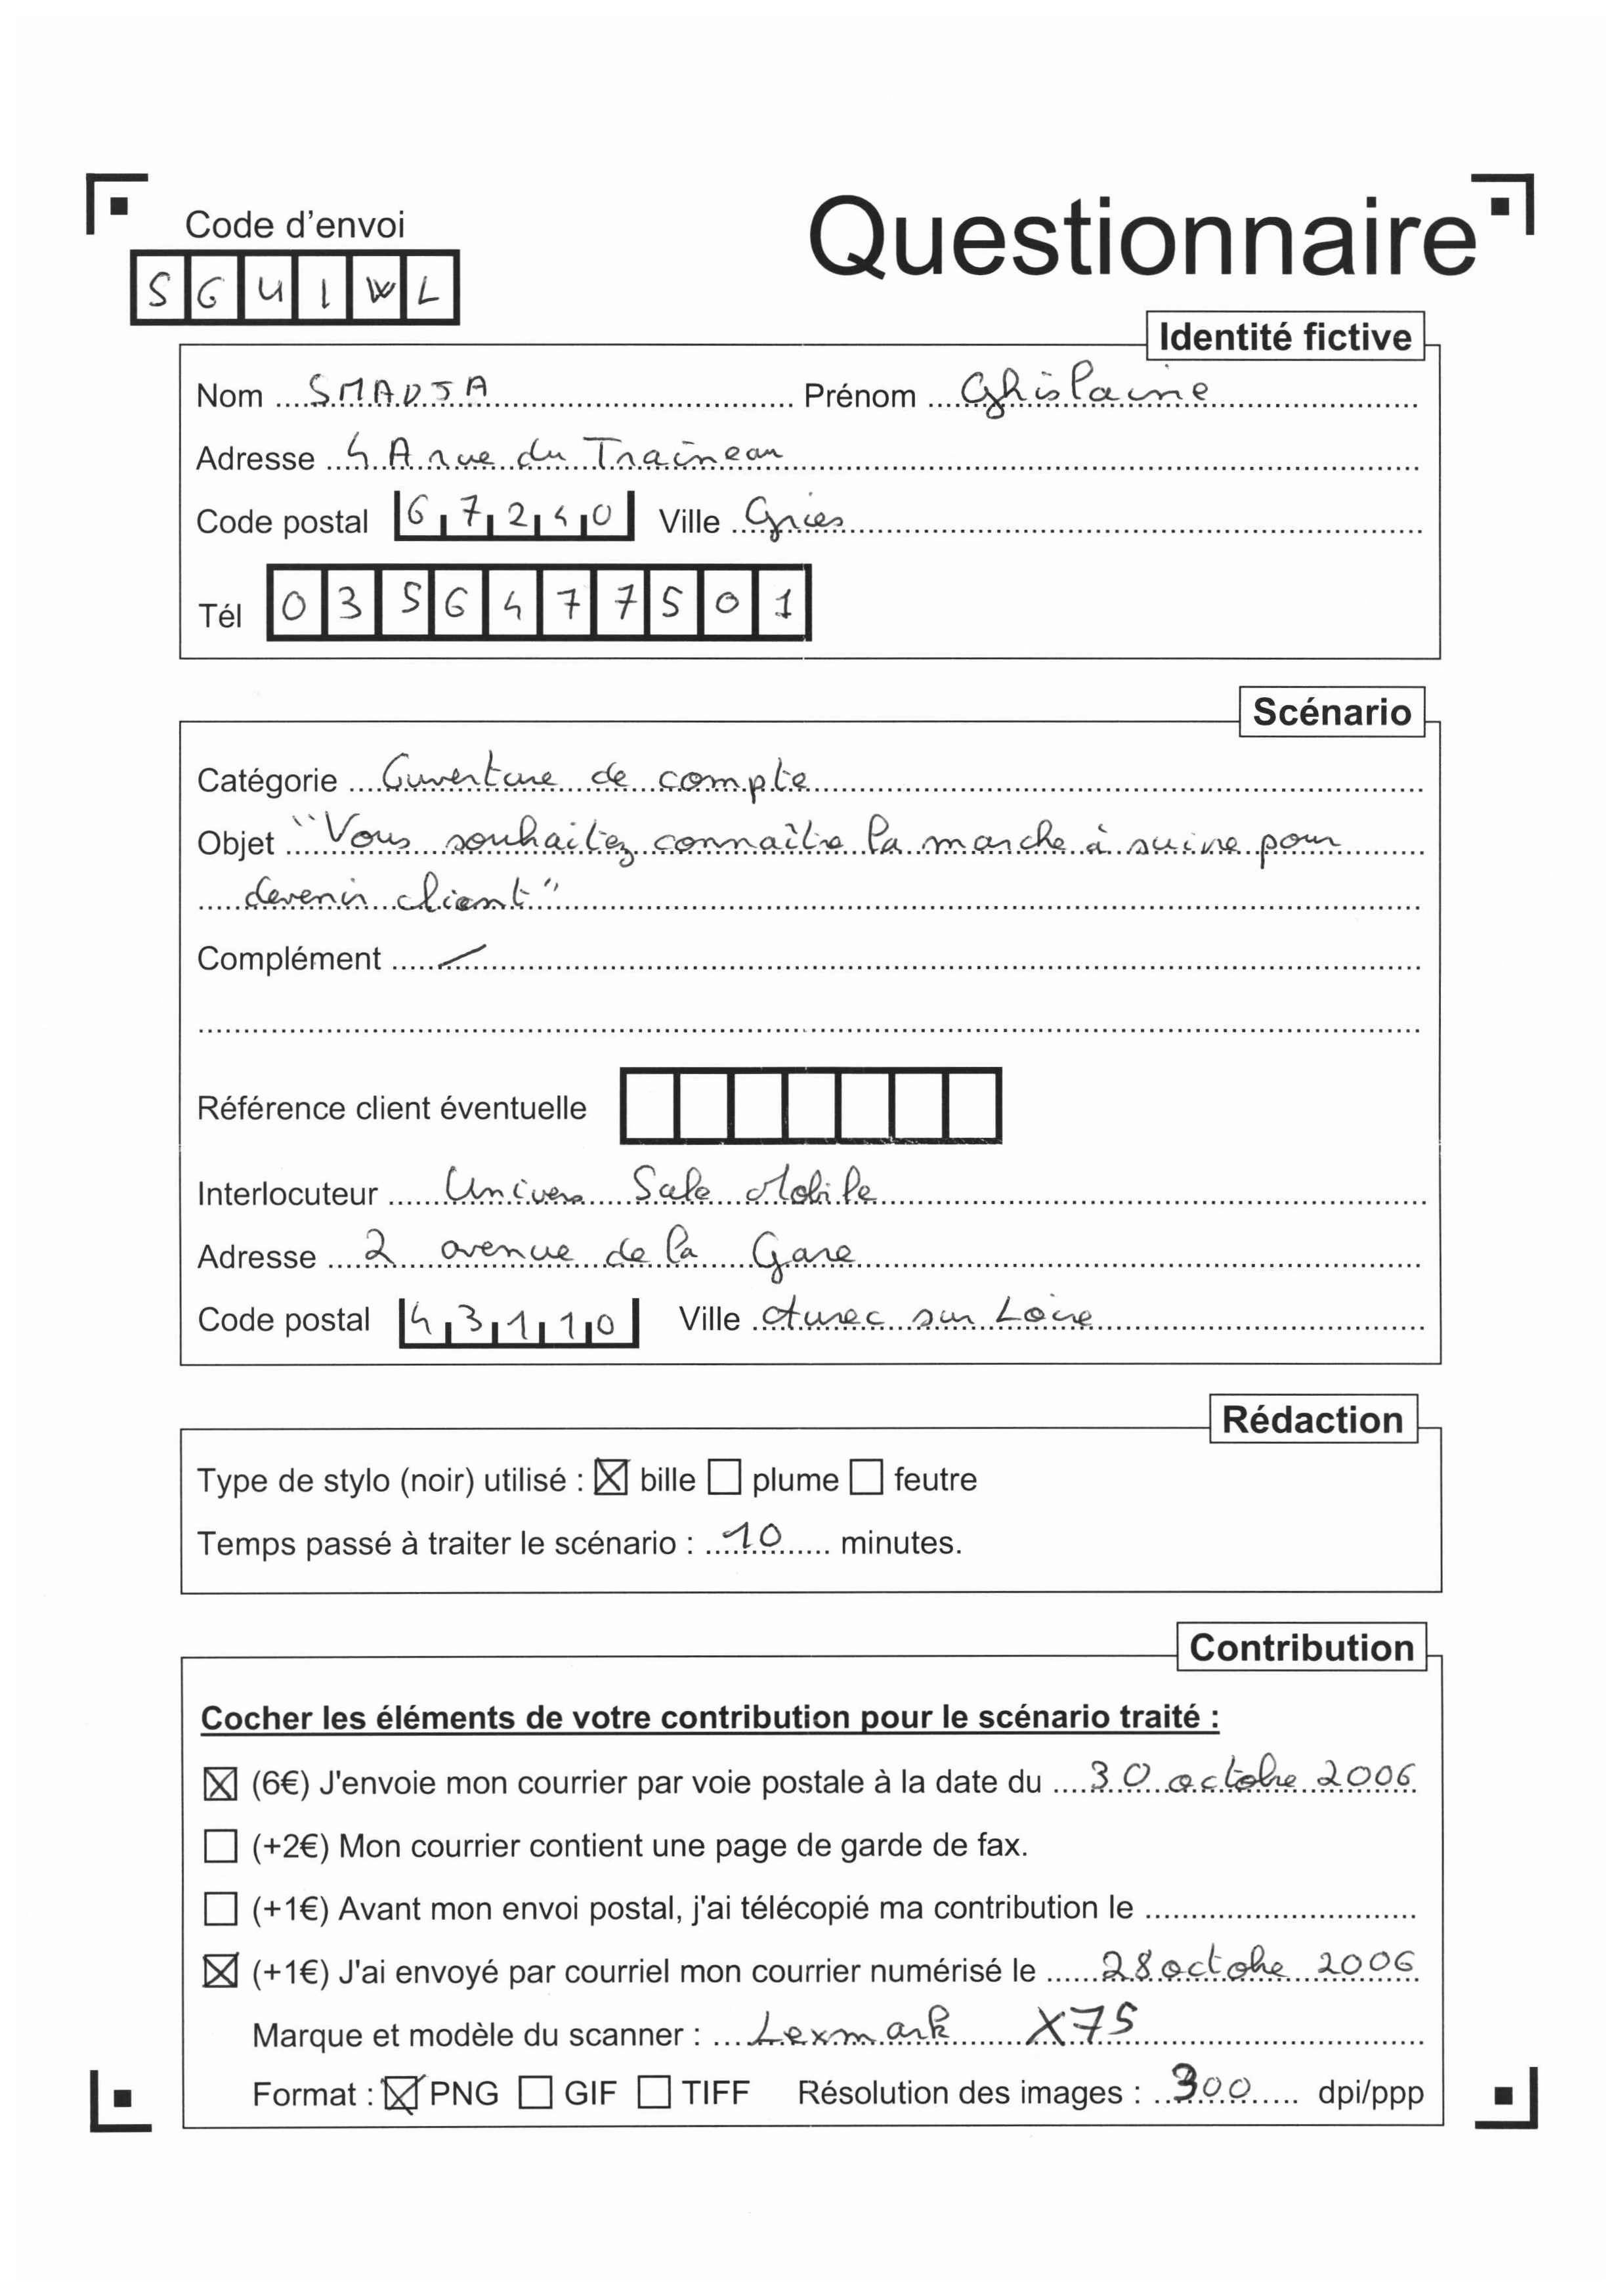 Code d'envoi
Questionnaire
S G U I W L
Identité fictive
Nom SMADJA Prénom Ghislaine
Adresse 4 A rue du Traîneau
Code postal 67240 Ville Gries
Tél 0356477501
Scénario
Catégorie Ouverture de compte
Objet "Vous souhaitez connaître la marche à suivre pour
devenir client"
Complément /
Référence client éventuelle
Interlocuteur Univers Sale Mobile
Adresse 2 avenue de la Gare
Code postal 43110 Ville Aurec sur Loire
Rédaction
Type de stylo (noir) utilisé : ☒ bille ☐ plume ☐ feutre
Temps passé à traiter le scénario : 10 minutes.
Contribution
Cocher les éléments de votre contribution pour le scénario traité :
☒ (6€) J'envoie mon courrier par voie postale à la date du 30 octobre 2006
☐ (+2€) Mon courrier contient une page de garde de fax.
☐ (+1€) Avant mon envoi postal, j'ai télécopié ma contribution le
☒ (+1€) J'ai envoyé par courriel mon courrier numérisé le 28 octobre 2006
Marque et modèle du scanner : Lexmark X75
Format : ☒ PNG ☐ GIF ☐ TIFF Résolution des images : 300 dpi/ppp